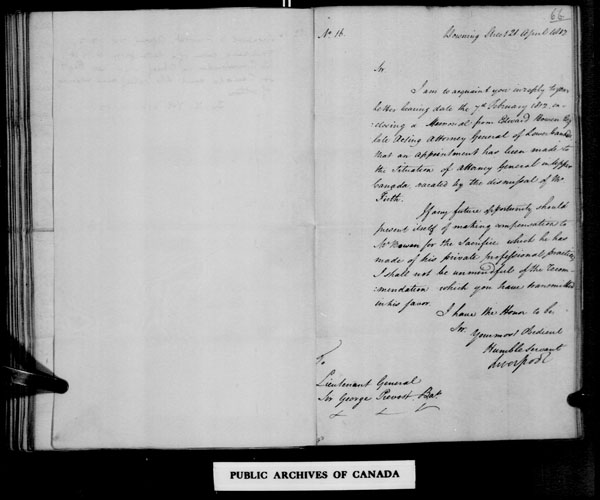 66
No. 16.
Downing Street 21 April 1812
Sir.
I am to acquaint you in reply to your
letter bearing date the 7th February 1812. en-
-closing a Memorial from Edward Bowen Esq
late Acting Attorney General of Lower Canada
that an appointment has been made to
the Situation of Attorney General in Upper
Canada vacated by the dismissal of Mr
Firth.
If any future opportunity should
present itself of making compensation to
Mr Bowen for the Sacrifice which he has
made of his private professional practice,
I shall not be unmindful of the recom-
-mendation which you have transmitted
in his favor.
I have the Honor to be
Sir. Your most Obedient
Humble Servant
Liverpool
To
Lieutenant General
Sir George Prevost Bat
PUBLIC ARCHIVES OF CANADA